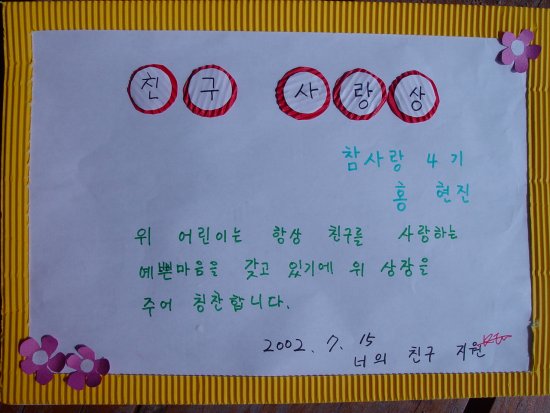 친구 사랑상
참사랑 4기
홍 현진
위 어린이는 항상 친구를 사랑하는
예쁜마음을 갖고 있기에 위 상장을
주어 칭찬합니다.
2002. 7. 15
너의 친구 지원